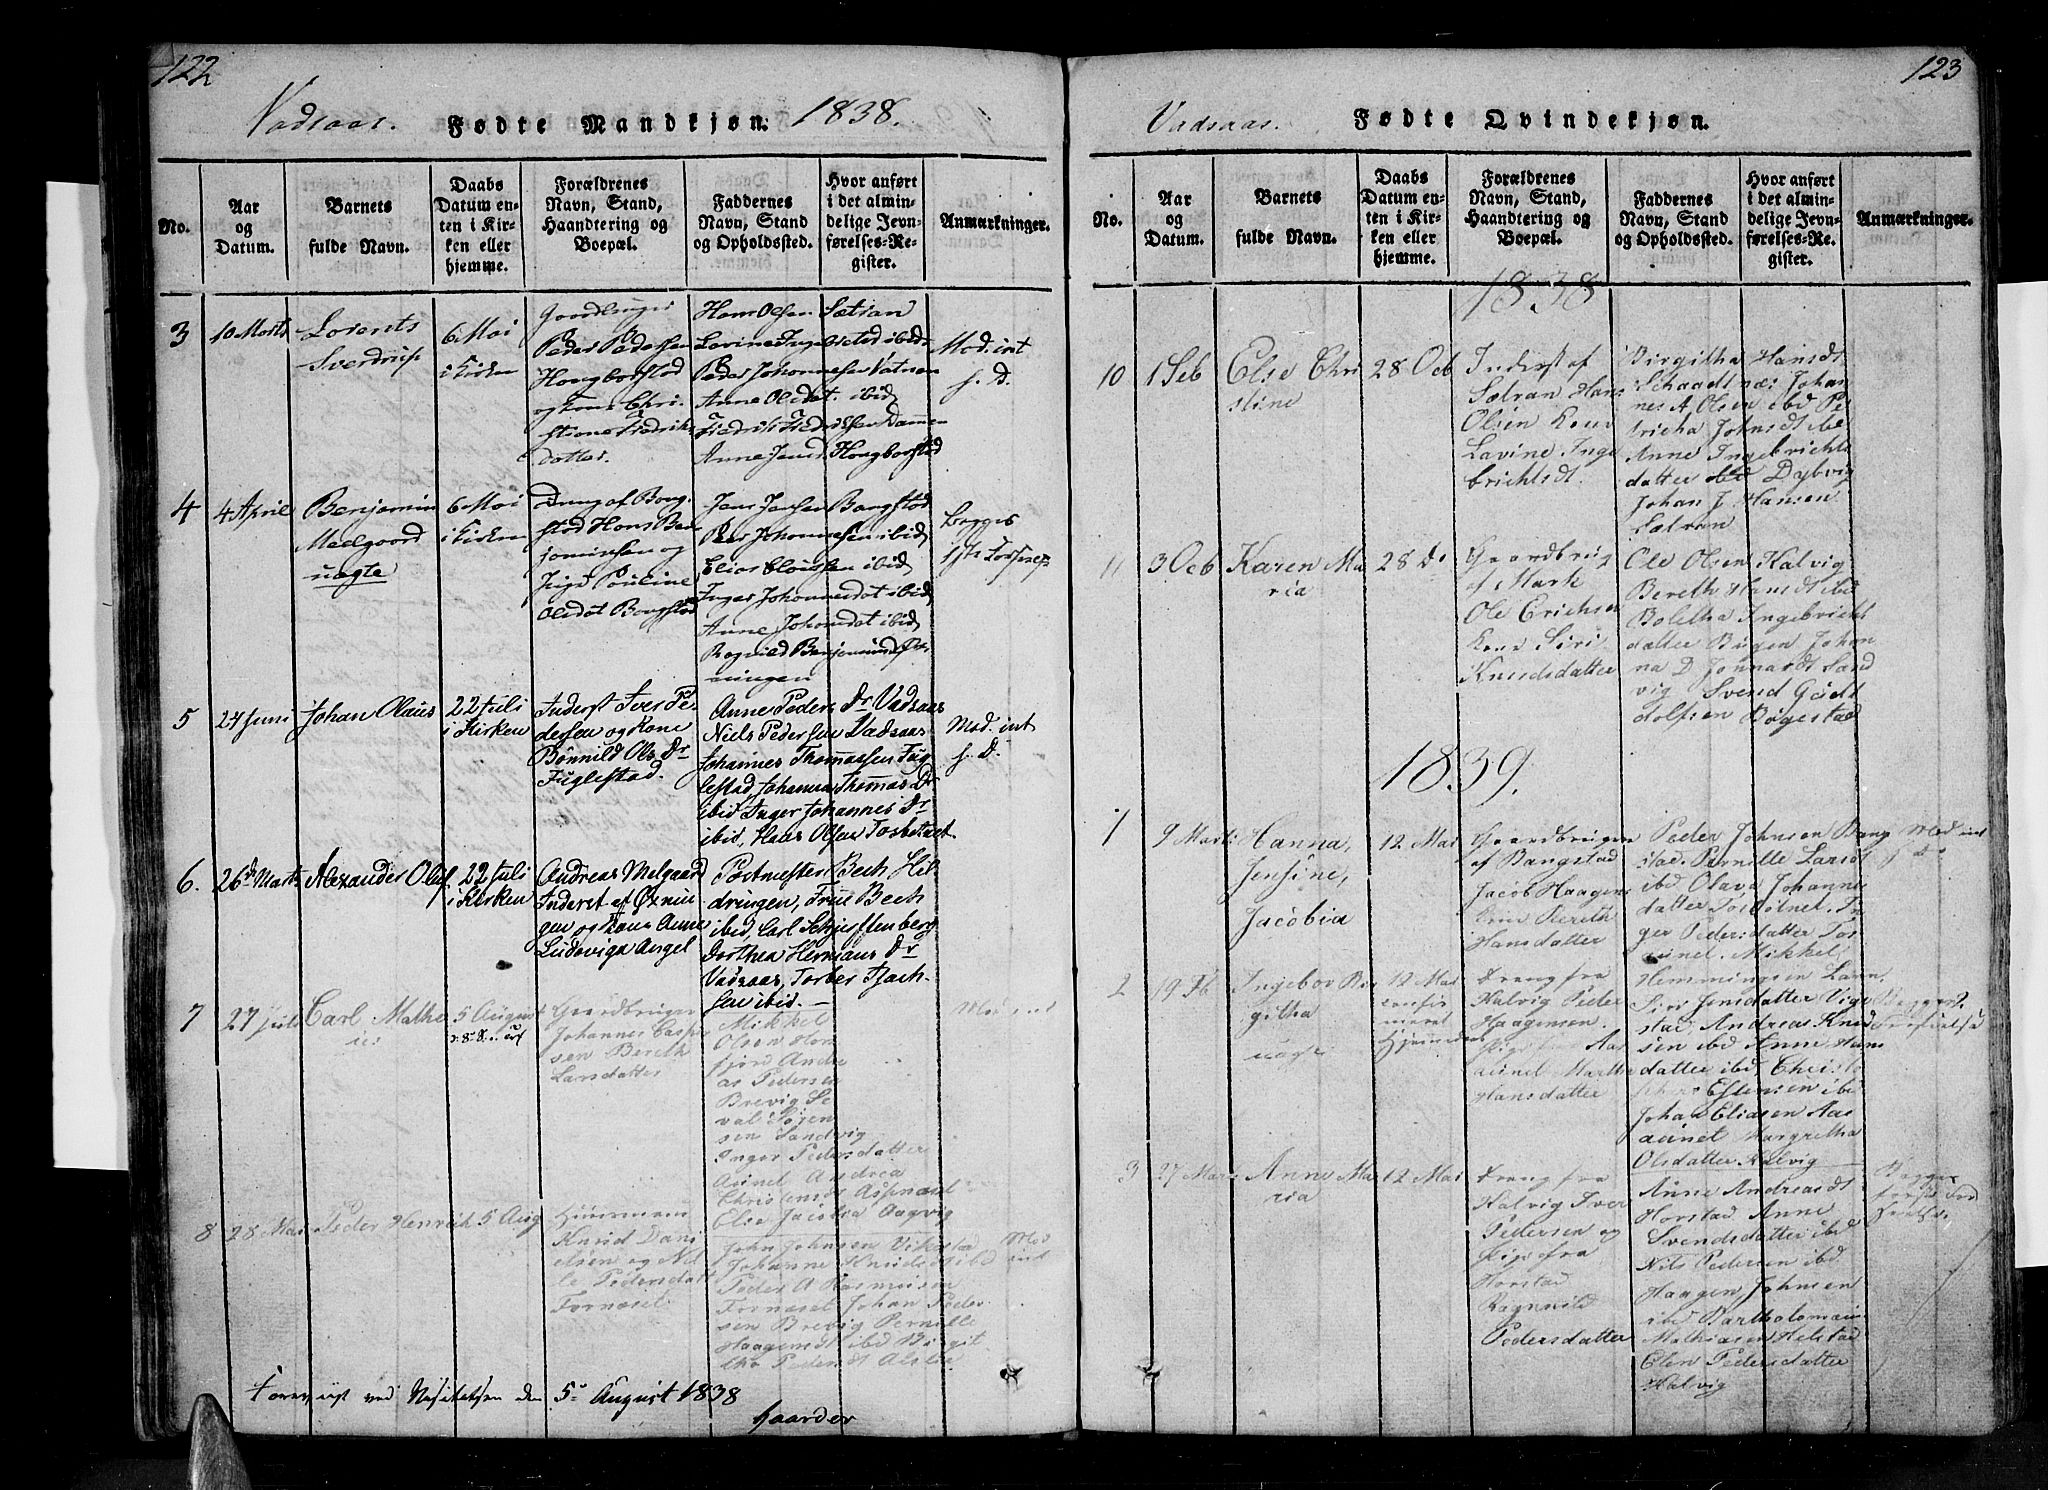 122
Vadsaas. Fødte Mandkjøn. 1838.
No.
Aar
og
Datum.
Barnets
fulde Navn.
Daabs
Datum en-
ten i Kir-
ken eller
hjemme.
Forældrenes
Navn, Stand,
Haandtering og
Boepæl.
Faddernes
Navn, Stand
og Opholdssted.
Hvor anført
i det almin-
delige Jevn-
førelses-Re-
gister.
Anmærkninger.
3
10 Marts
Lorents
Sverdrup
6 Mai
i Kirken
Gaardbruger
Peder Pedersen
Hongborstad
og Kone Chri-
stiane Fredriks
datter.
Hans Olsen Sætran
Lavine Inge
ibid
Peder Johannesen Vatnen
Anne Olsdat. ibid
Fredrik Fredriksen Dammen
Anne Jensd. Hongborstad
Mod. int
s. D.
4
4 April
Benjamin
Meelgaard
uægte
6 Mai
i Kirken
Dreng af Bang-
stad Hans Ben-
jaminsen og
Pige Pauline
Olsdat Bangstad
Jens Jensen Bangstad
Peer Johannesen ibid
Elias Clausen ibid
Inger Johannesdat ibid
Anne Johansdat ibid
Ragnild Benjaminsd
ningen
Begges
1ste Forseelse
5
24 Juni
Johan Olaus
22 Juli
i Kirken
Inderst Iver Pe-
dersen og Kone
Bønnild Ols Dr
Fuglestad.
Anne Peders Dr Vadsaas
Niels Pedersen Vadsaas
Johannes Thomassen Fug
lestad Johanna Thomas Dr
ibid Inger Johannes Dr
ibid, Hans Olsen Torstenet
Mod. int
s. D.
6.
26de Marts
Alexander Oluf
22 Juli
i Kirken
Andreas Melgaard
Inderst af Øxnin-
gen og Kone Anne
Ludoviga Angel
Postmester Bech Hil-
dringen, Frue Bech
ibid, Carl Schjeftenberg
Dorthea Hermans Dr
Vadsaas, Torber Isach-
sen ibid.
7
27 Juli
Carl Mathe
us
5 August
Gaardbruger
Johannes Casper
sen Bereth
Larsdatter
Mikkel
Olsen Hom
fjord Andre
as Pedersen
Brevig Se
val Sørjen
sen Sandvig
Inger Pedersdatter
Aunet Andrea
Chris Jensdt Aspenaset
Else Jacobsa Aagvig
8
28 Mai
Peder Henrich
5 Aug
Huusmand
Knud Dani
elsen og Nil
le Pedersdatt
Tornæset
John Johnsen Vikestad
Johanne Knudsdt ibd
Peder A Rasmusen
Tornæset Johan Peder
sen Brevig Pernille
Haagensdt ibd Birgit
tha Pedersdt
Mod
int
Forevist ved Visitatsen den 5te August 1838
Haarder
123
Vadsaas. Fødte Qvindekjøn.
No.
Aar
og
Datum.
Barnets
fulde Navn.
Daabs
Datum en-
ten i Kir-
ken eller
hjemme.
Forældrenes
Navn, Stand,
Haandtering og
Boepæl.
Faddernes
Navn, Stand
og Opholdssted.
Hvor anført
i det almin-
delige Jevn-
førelses-Re-
gister.
Anmærkninger.
1838
10
1 Seb
Else Chri
stine
28 Ocb
Inderst af
Sætran Hans
Olsen Kone
Lavine Inge
brichtsdt.
Birgitha Hansdt
Schaadtnæs Johan
nes A. Olsen ibd Pe
tricha Johnsdt ibd
Anne Ingebrichts
datter ibd Dybvig
Johan J. Hansen
Sætran
11
3 Ocb
Karen Ma
ria
28 Do
Gaardbrug
af Mark
Ole Erichsen
Kone Siri
Knudsdatter
Ole Olsen Kalvig
Bereth Hansdt ibd
Boletha Ingebricht
datter Bugen Johan
na D Jonnardt Sand
vig Svend Gudt
dolfsen Bøgestad
1839.
1
9 Marts
Hanna,
Jensine,
Jacobia
12 Mai
Gaardbruger
af Bangstad
Jacob Haagens
Kone Bereth
Hansdatter
Peder Johnsen Bang
stad. Pernille Larsdt
ibd Olava Johannes
datter Torstenet. In
ger Pedersdatter Tor
aunet. Mikkel
Hemmingsen Lavn.
Mod int
s. D.
2
19 Fb
Ingebor Bir
githa
uægte
12 Mai
confir
meret
Hjemmedøbt
Dreng fra
Kalvig Peder
Haagensen.
Pige fra Aas
aunet Martha
Hansdatter
Siri Jensdatter Vige
stad Andreas Knud
sen ibd Anne Hans
datter ibd, Christo
Estensen ibd
Johan Eliasen Aas
aunet Margretha
Olsdatter Kalvig
Begges
Forseelse
3
27 Marts
Anne Ma
ria
12 Mai
Dreng fra
Kalvig Iver
Pedersen og
Pige fra
Horstad
Ragnnild
Pedersdatter
Anne Andreasdt
Horstad Anne
Svendsdatter ibd
Nils Pedersen ibd
Haagen Johnsen
ibd Bartholomæus
Mathiasen Helstad
Elen Pedersdatter
Kalvig
Begges
første For
seelse.